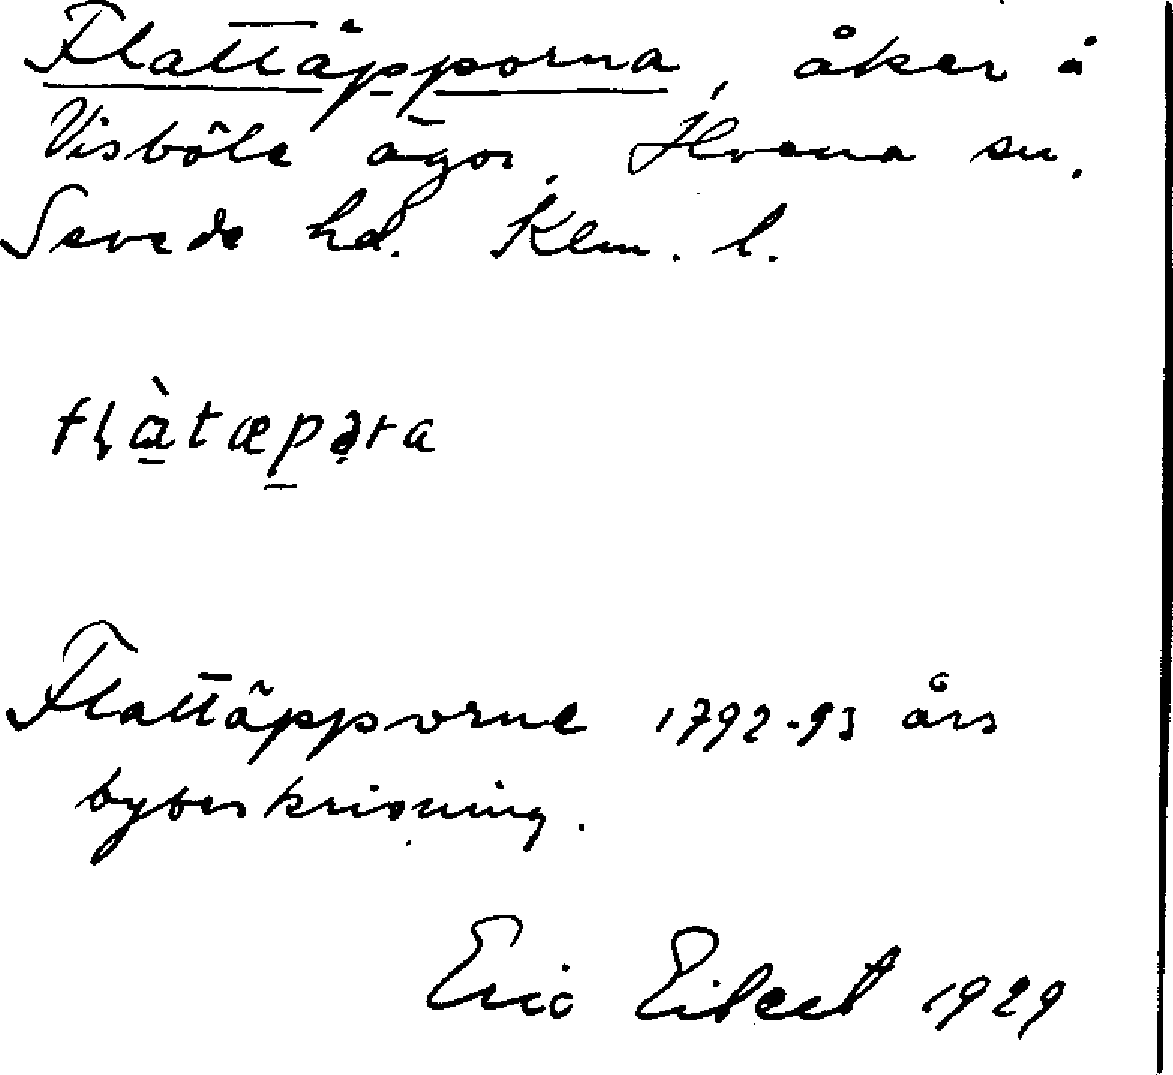 Flattäpporna, åker å
Visböle ägor, Hvena sn.
Sevede hd. Klm. l.
flàtæpəra
Flattäpporne 1792-93 års
bybeskrivning.
Eric Eilert 1929